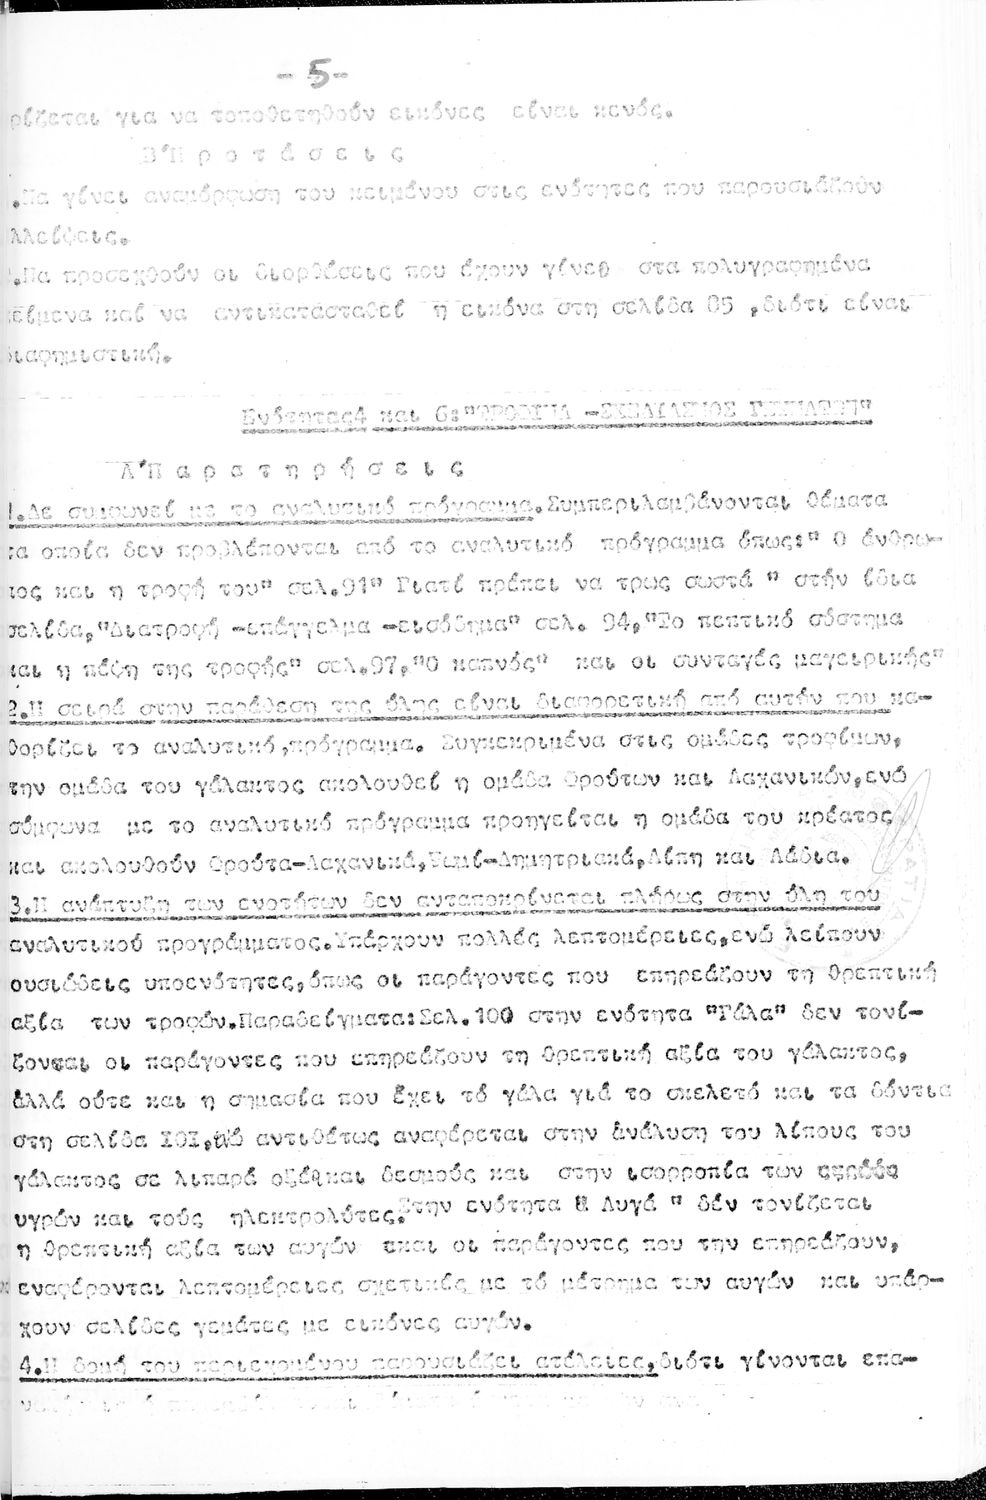 - 5-
ρίζεται για να τοποθετηθούν εικόνες είναι κενός.
Β'Π ρ ο τ ά σ ε ι ς
.Να γίνει αναμόρφωση του κειμένου στις ενότητες που παρουσιάζουν
λλείψεις.
.Να προσεχθούν οι διορθώσεις που έχουν γίνει στα πολυγραφημένα
είμενα καί να αντικατασταθεί η εικόνα στη σελίδα 85 ,διότι είναι
διαφημιστική.
Ενότητας4 και 6:"ΤΡΟΦΙΜΑ -ΣΧΕΔΙΑΣΜΟΣ ΓΕΥΜΑΤΩΝ"
Α'Π α ρ α τ η ρ ή σ ε ι ς
1.Δε συμφωνεί με το αναλυτικό πρόγραμμα.Συμπεριλαμβάνονται θέματα
τα οποία δεν προβλέπονται από το αναλυτικό πρόγραμμα όπως:" Ο άνθρω-
πος και η τροφή του" σελ.91" Γιατί πρέπει να τρως σωστά " στήν ίδια
σελίδα,"Διατροφή -επάγγελμα -εισόδημα" σελ. 94,"Το πεπτικό σύστημα
και η πέψη της τροφής" σελ.97,"Ο καπνός" και οι συνταγές μαγειρικής"
2.Η σειρά στην παράθεση της ύλης είναι διαφορετική από αυτήν που κα-
θορίζει το αναλυτικό,πρόγραμμα. Συγκεκριμένα στις ομάδες τροφίμων,
την ομάδα του γάλακτος ακολουθεί η ομάδα Φρούτων και Λαχανικών,ενώ
σύμφωνα με το αναλυτικό πρόγραμμα προηγείται η ομάδα του κρέατος
και ακολουθούν Φρούτα-Λαχανικά,Ψωμί-Δημητριακά,Λίπη και Λάδια.
3.Η ανάπτυξη των ενοτήτων δεν ανταποκρίνεται πλήρως στην ύλη του
αναλυτικού προγράμματος.Υπάρχουν πολλές λεπτομέρειες,ενώ λείπουν
ουσιώδεις υποενότητες,όπως οι παράγοντες που επηρεάζουν τη θρεπτική
αξία των τροφών.Παραδείγματα:Σελ.100 στην ενότητα "Γάλα" δεν τονί-
ζονται οι παράγοντες που επηρεάζουν τη θρεπτική αξία του γάλακτος,
άλλά ούτε και η σημασία που έχει τό γάλα γιά το σκελετό και τα δόντια
στη σελίδα ΙΟΙ, αντιθέτως αναφέρεται στην άνάλυση του λίπους του
γάλακτος σε λιπαρά οξέα και δεσμούς και στην ισορροπία των
υγρών και τούς ηλεκτρολύτες.Στην ενότητα " Αυγά " δέν τονίζεται
η θρεπτική αξία των αυγών και οι παράγοντες που την επηρεάζουν,
αναφέρονται λεπτομέρειες σχετικές με τό μέτρημα των αυγών και υπάρ-
χουν σελίδες γεμάτες με εικόνες αυγών.
4.Η δομή του περιεχομένου παρουσιάζει ατέλειες,διότι γίνονται επα-